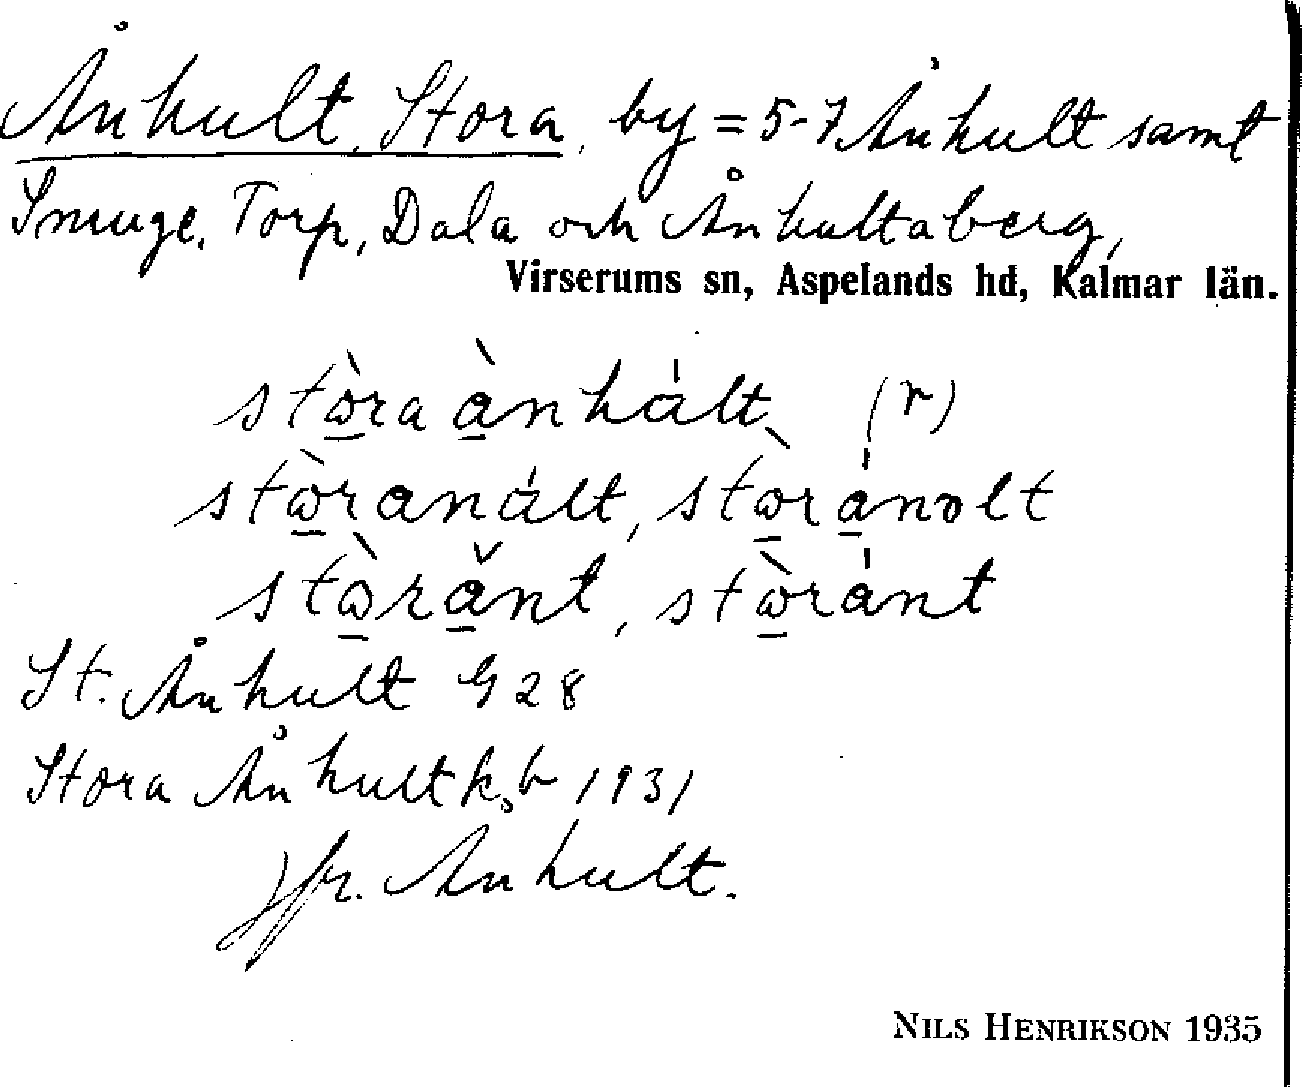 Ånhult, Stora, by = 5-7 Ånhult samt
Smuge, Torp, Dala och Ånhultaberg,
Virserums sn, Aspelands hd, Kalmar län.
stɷ̠̀ra à̠nhált (r)
stɷ̠̀ranált, stɷ̠̀rá̠nolt
stɷ̠̀rǎ̠nt, stɷ̠̀ránt
St. Ånhult G 28
Stora Ånhult k.b 1931
Jfr. Ånhult.
NILS HENRIKSON 1935